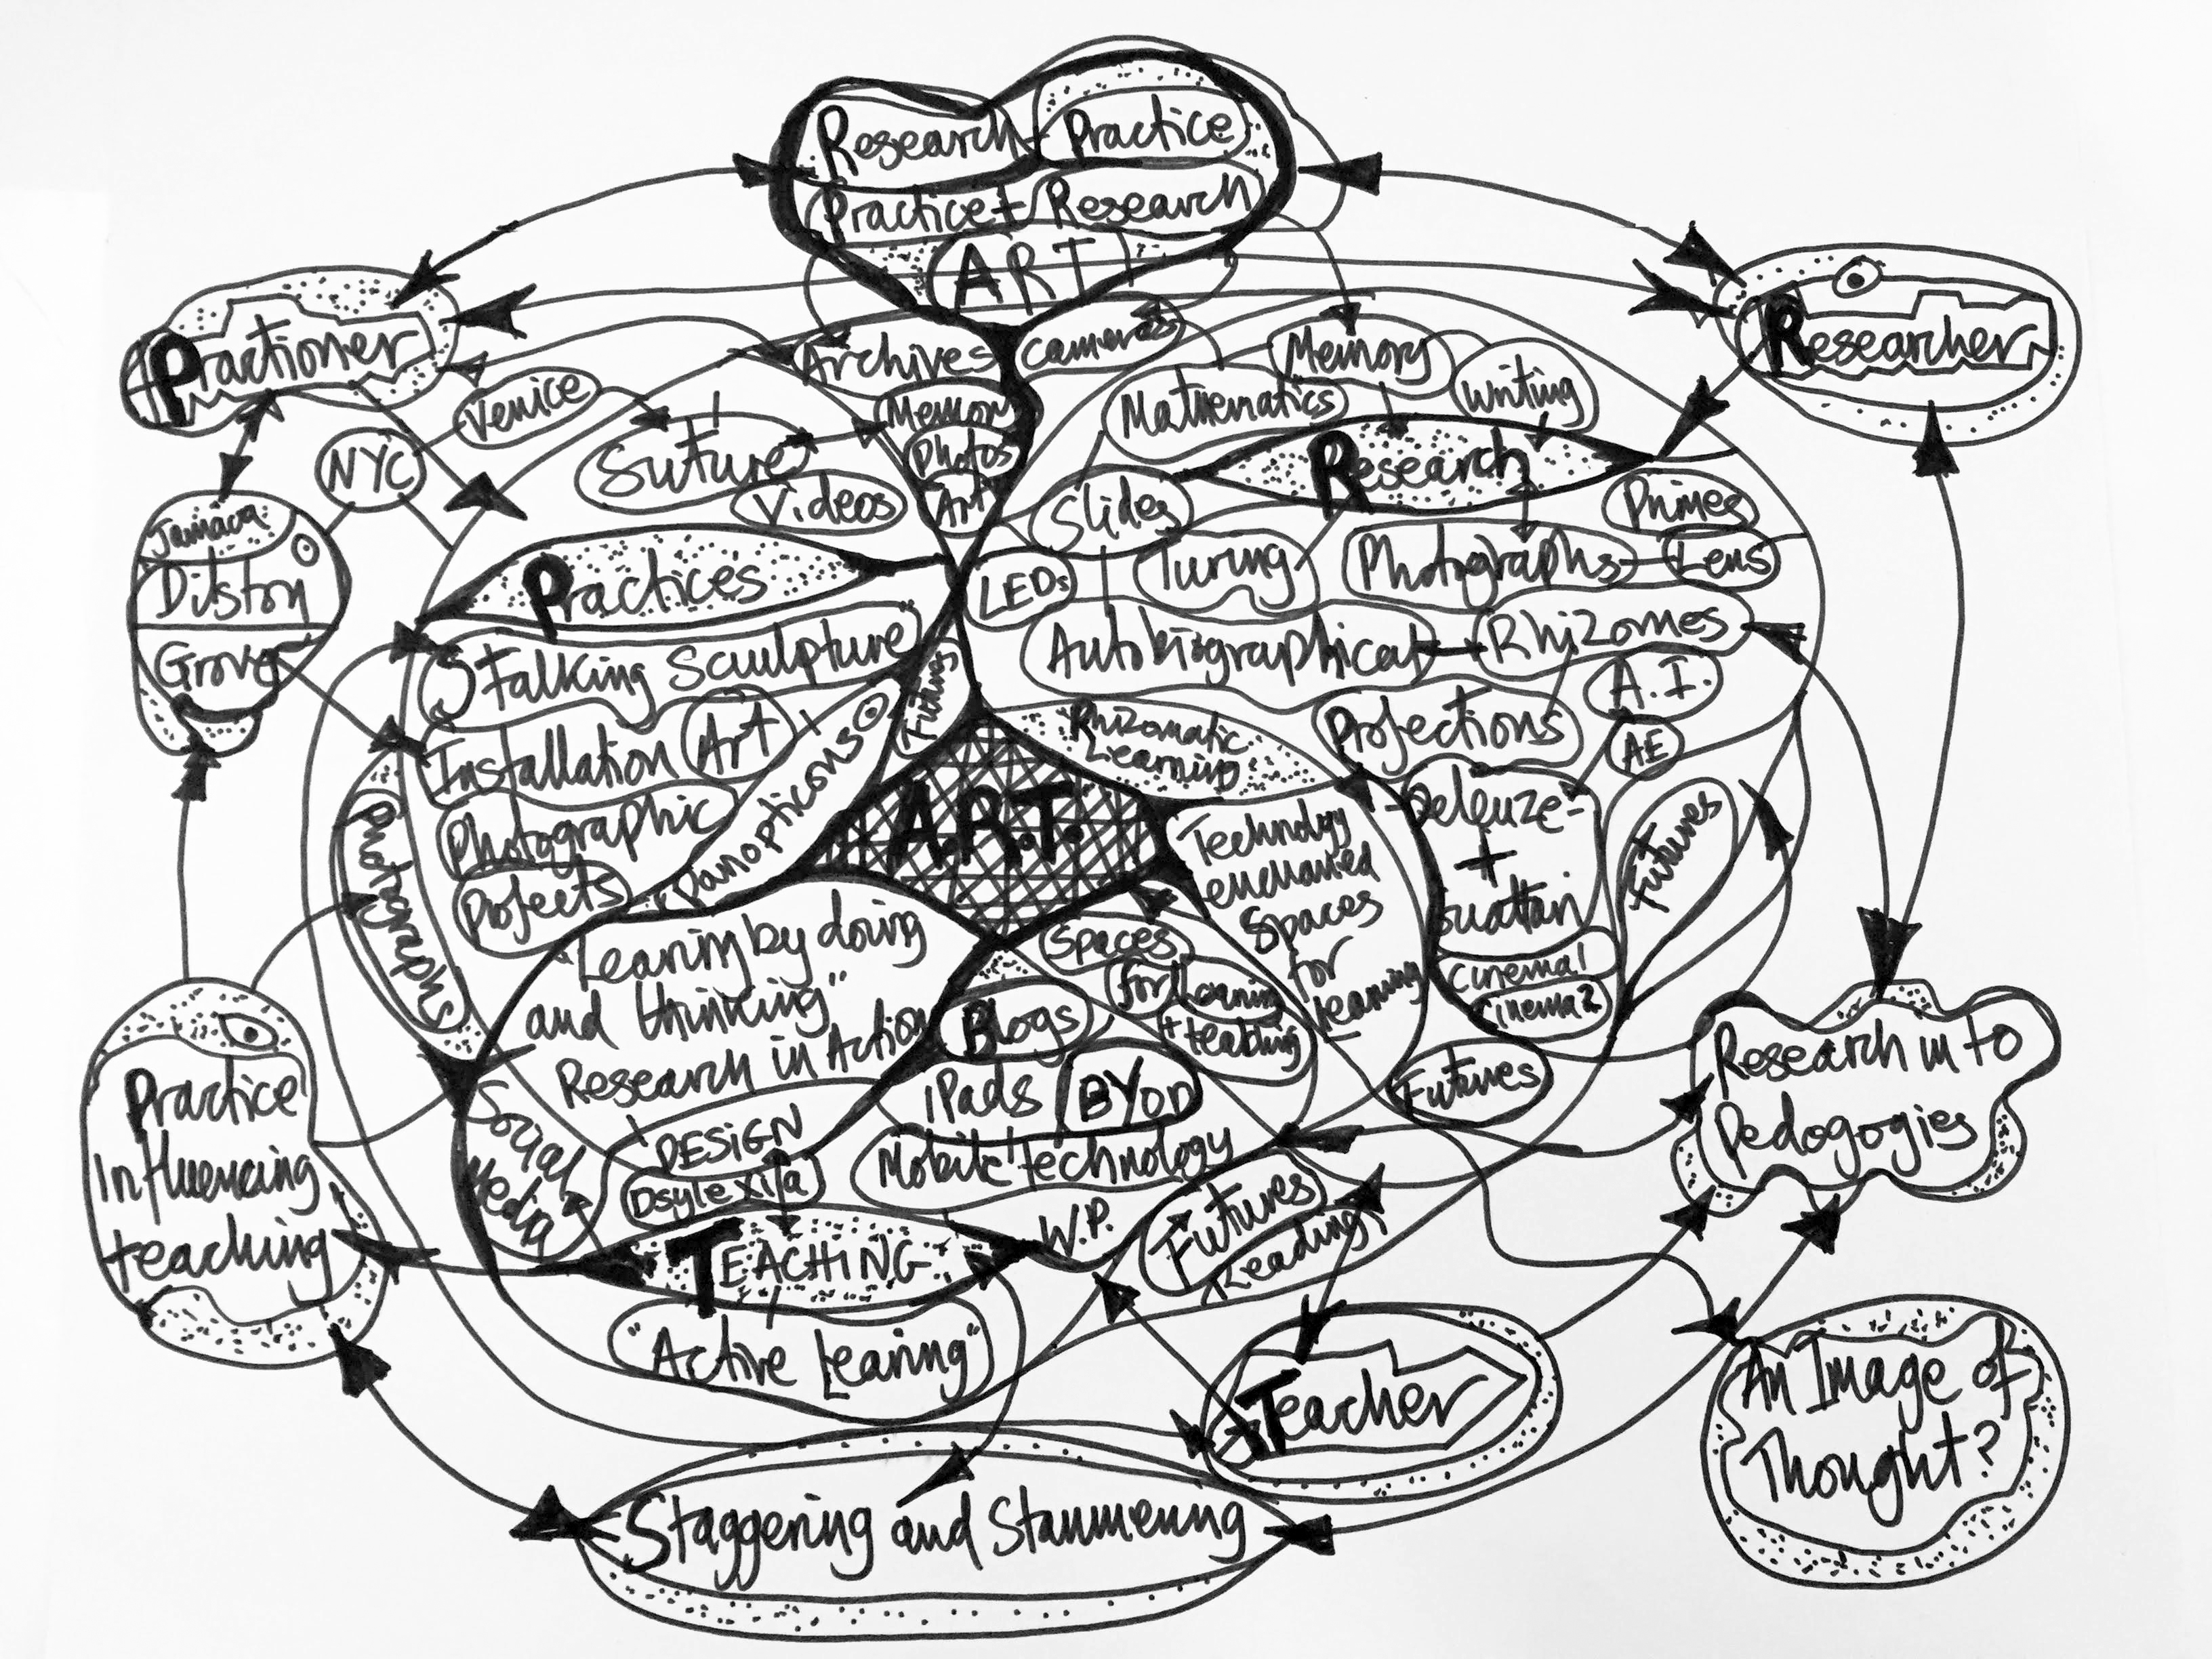 Research
Practice
Practice + Research
ART
Practioner
Researcher
Archives
cameras
Memory
Mathematics
Writing
Venice
NYC
Suture
Memory
Photos
Art
Videos
Research
Slides
Primes
Jamaica
Dilston
Grove
Practices
LEDs
Turing
Photographs
Lens
Stalking Sculpture
Futures
Autobiographical
Rhizomes
A.I.
Installation Art
Panopticons
Rhizomatic
Learning
Projections
AE
Photographic
Projects
Photographs
A.R.T.
Technology
enchanced
Spaces
for
learning
Deleuze
+
Guattari
Futures
Cinema 1
Cinema 2
"Learning by doing
and thinking"
Research in Action
Spaces
for learning
+ teaching
Blogs
iPads
BYOD
Mobile Technology
Futures
Social
Media
DESIGN
Dsylexia
W.P.
Futures
Leading
TEACHING
"Active Learing"
Practice
Influencing
teaching
Research in to
Pedogogies
Teacher
An Image of
Thought?
Staggering and Stammering